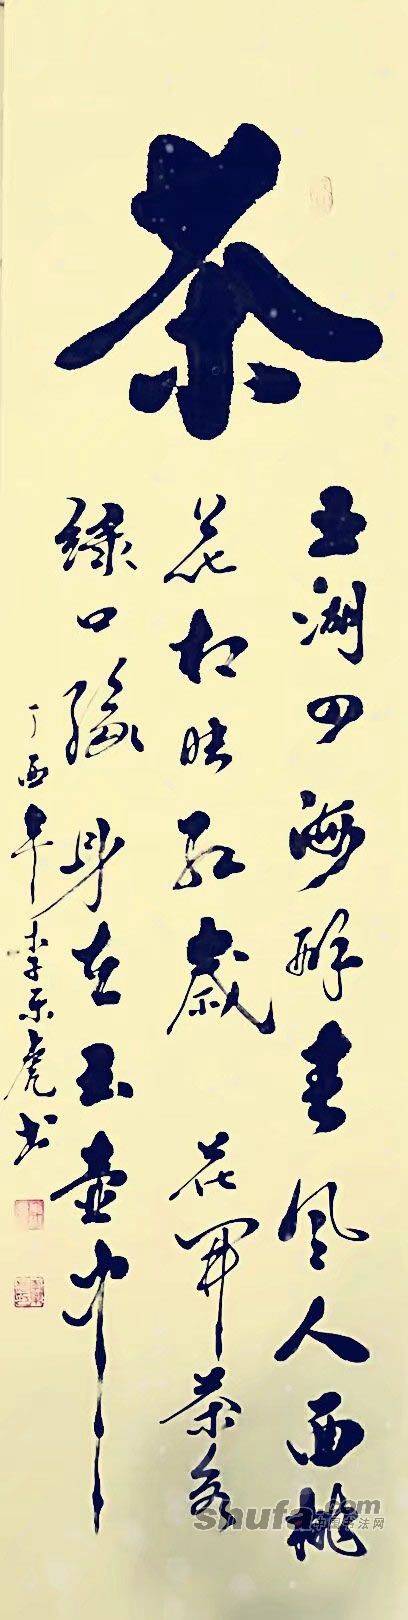 茶
五湖四海醉春风人面桃
花相映红歲花开茶色
绿只缘身在玉壶中
丁酉年李乐虎书
shufa.com
中国书法网